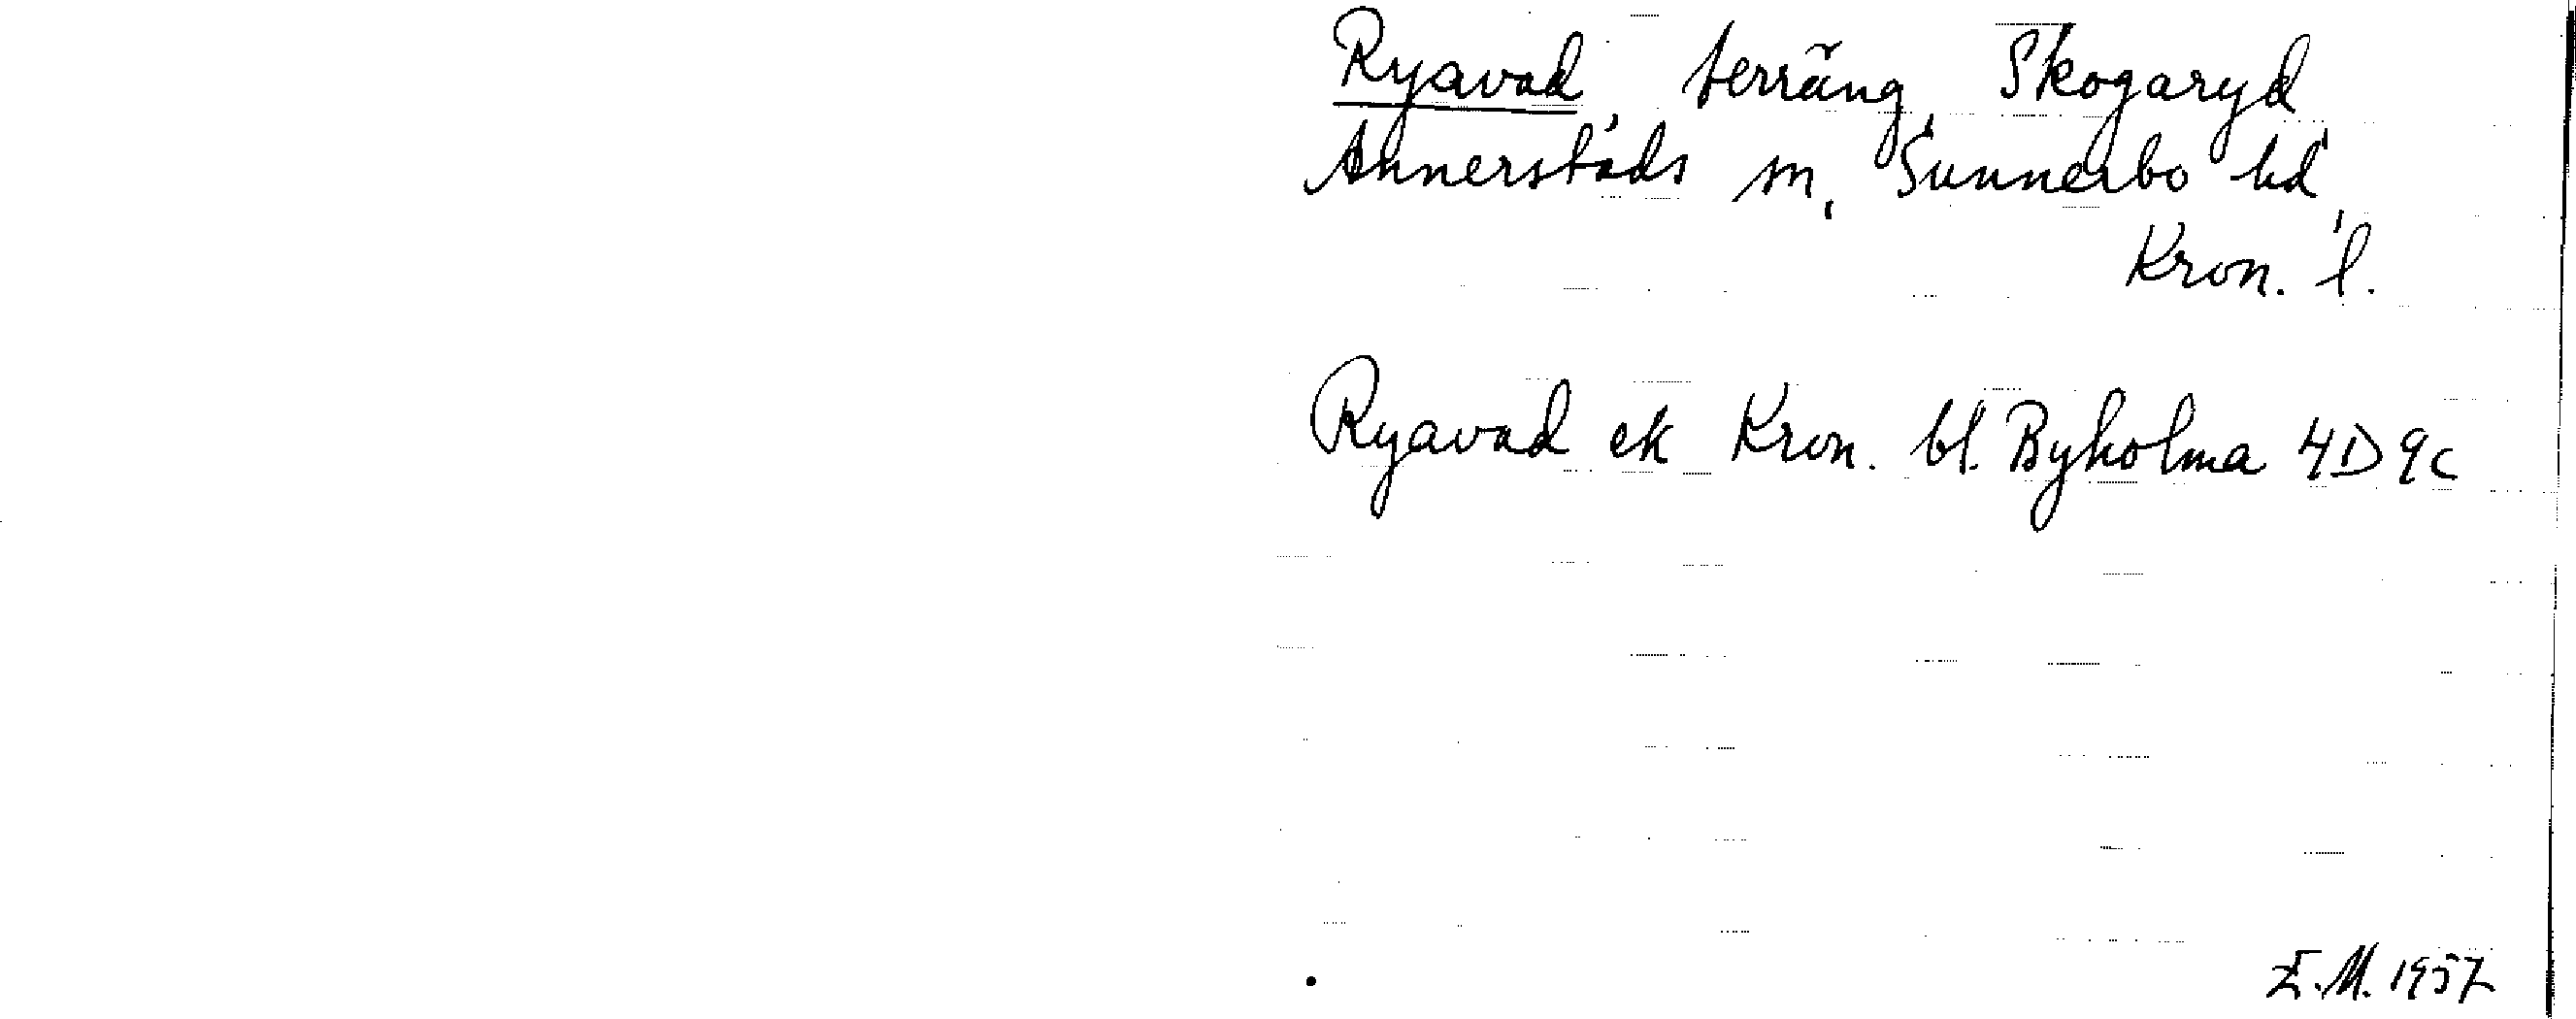 Ryavad, terräng, Skogaryd
Annerstads sn, Sunnerbo hd,
Kron. l.
Ryavad ek Kron. bl. Byholma 4D9c
E.M. 1957